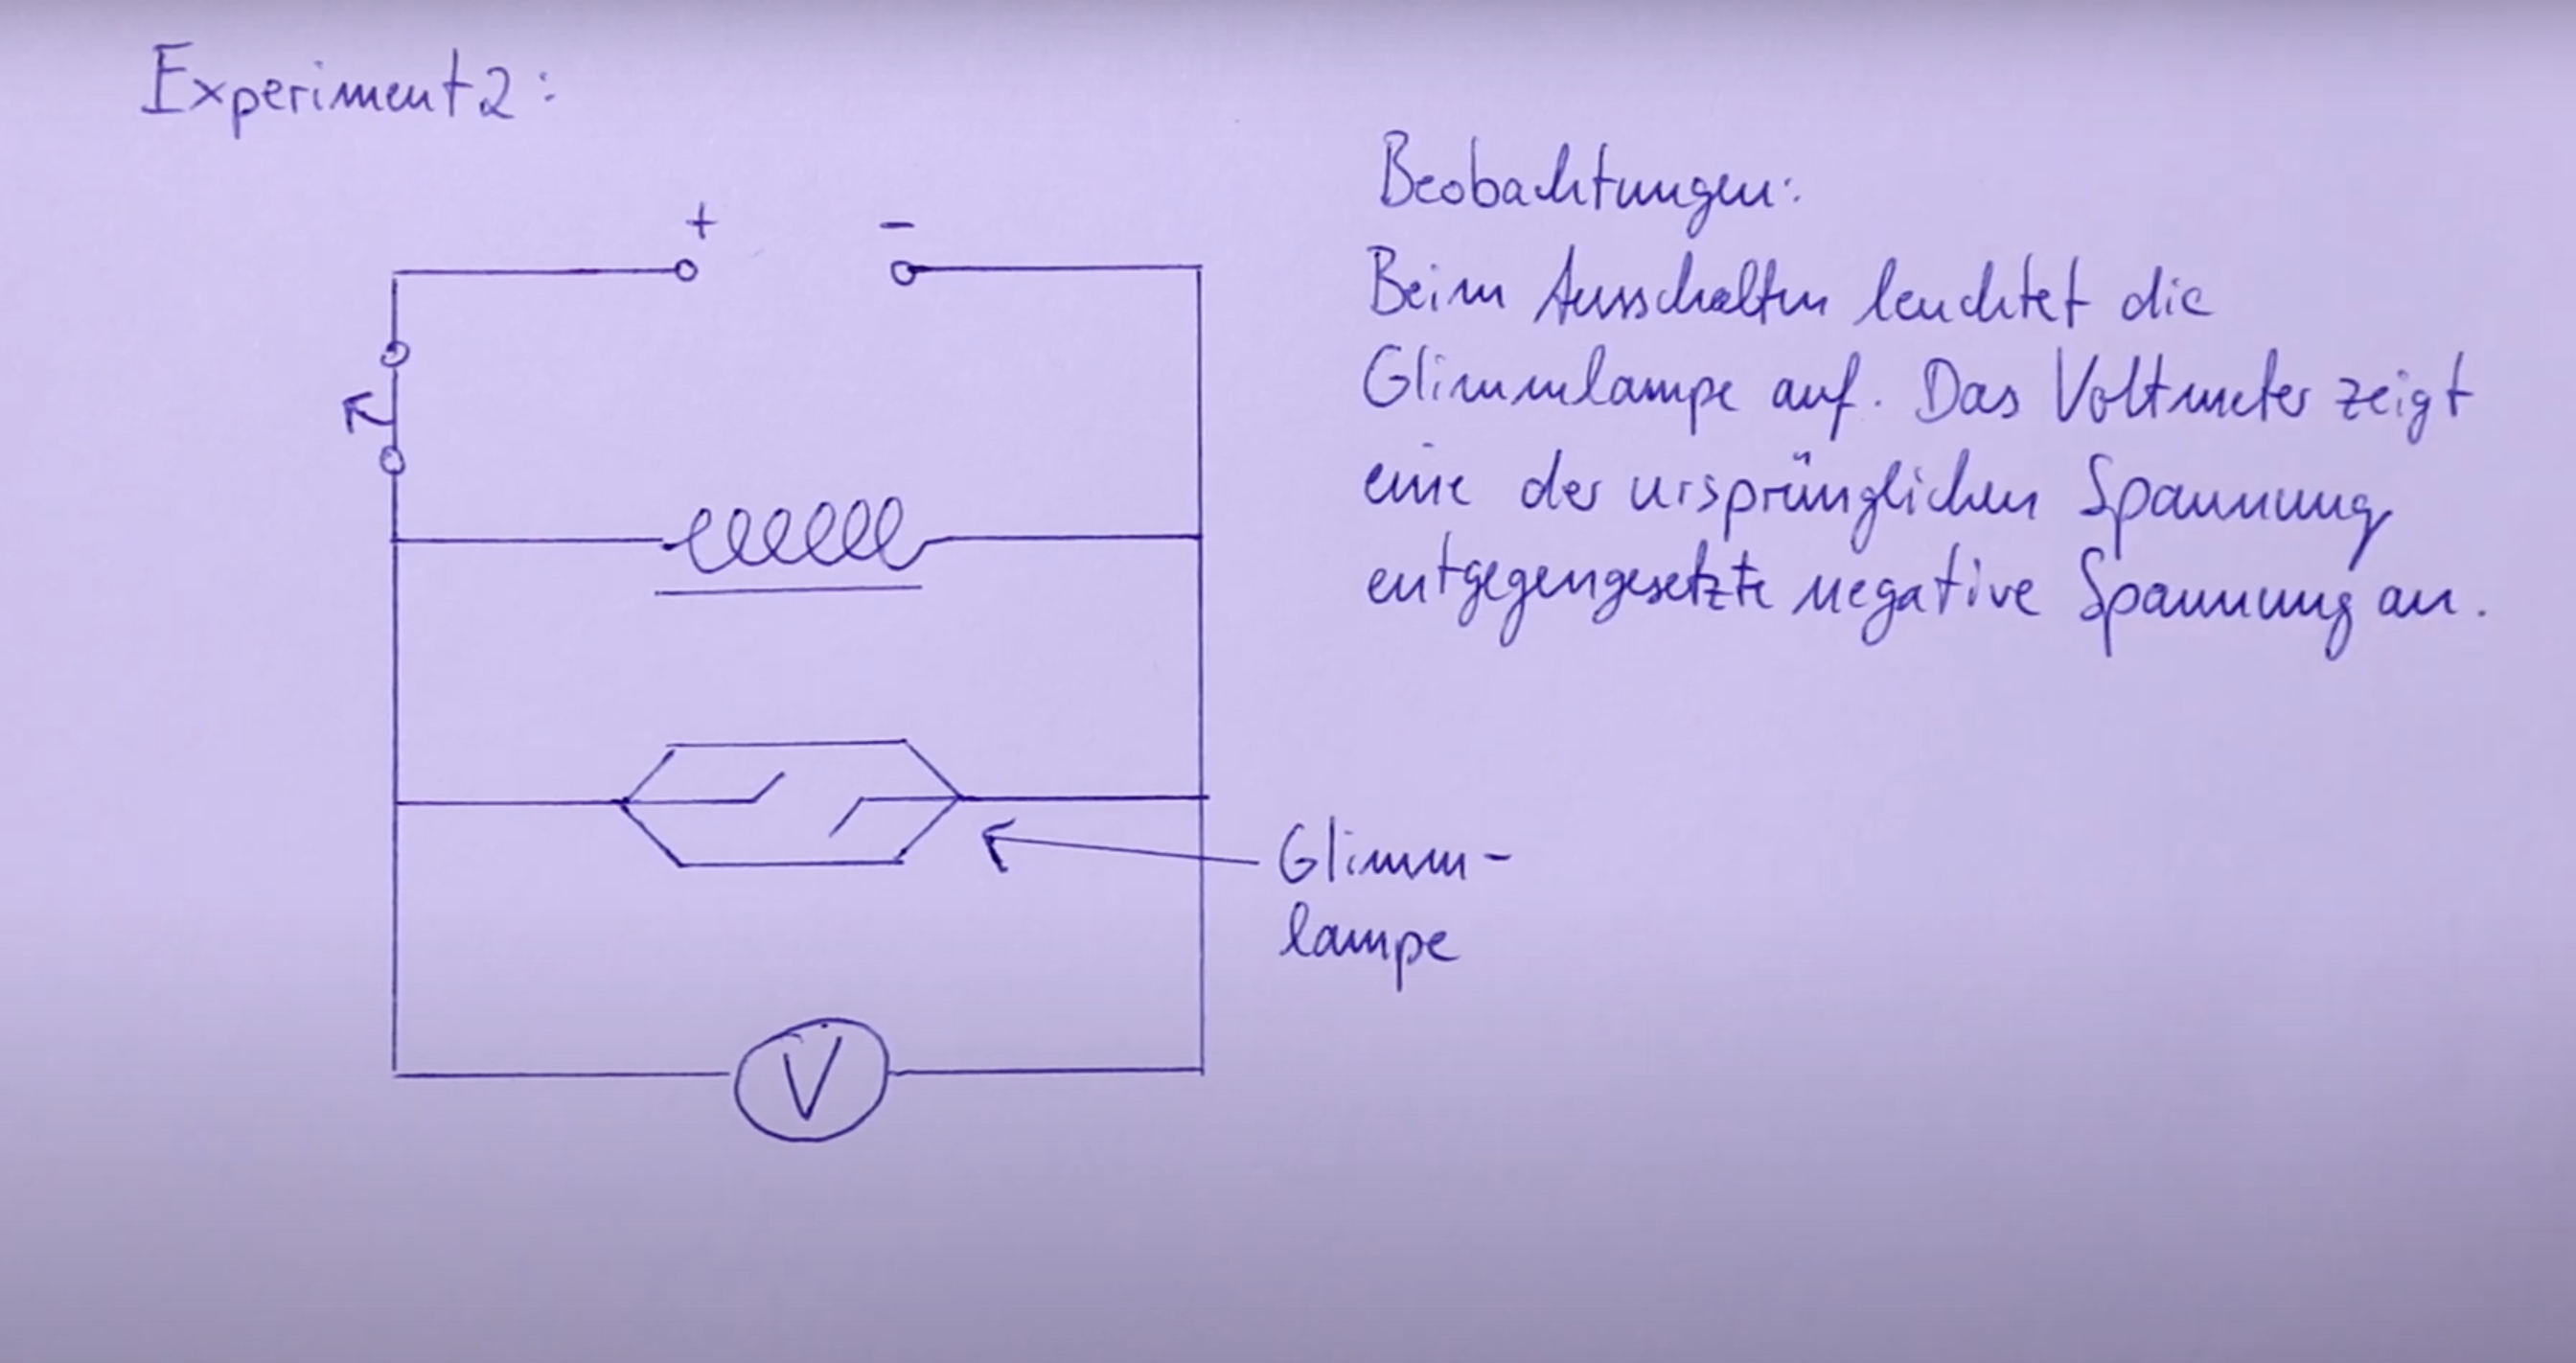 Experiment 2:
+ -
Beobachtungen:
Beim Ausschalten leuchtet die
Glimmlampe auf. Das Voltmeter zeigt
eine der ursprünglichen Spannung
entgegengesetzte negative Spannung an.
Glimm-
lampe
V